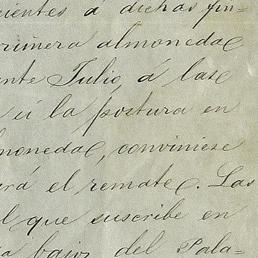 cientes á dichas fin=
primera almoneda
ente Julio á las
si la postura en
moneda, conviniese
ará el remate. Las
l que suscribe en
a bajos del Pala-